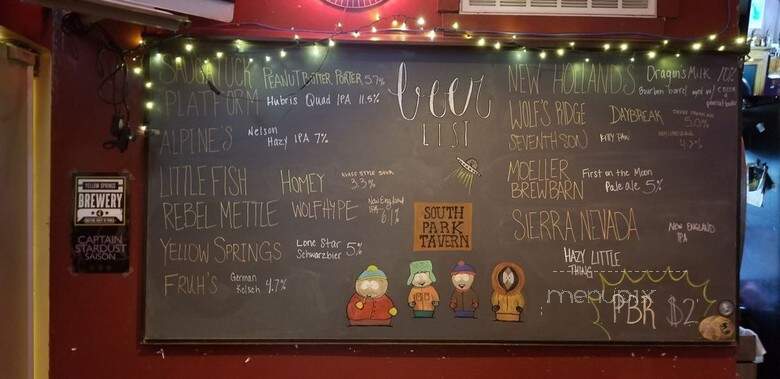 SAUGATUCK PEANUT BUTTER PORTER 5.7%
PLATFORM Hubris Quad IPA 11.5%
ALPINE'S Nelson Hazy IPA 7%
LITTLE FISH HOMEY STYLE SOUR 3.3%
REBEL METTLE WOLF HYPE New England IPA 6.1%
YELLOW SPRINGS Lone Star Schwarzbier 5%
FRUH'S German Kolsch 4.7%
beer
LIST
SOUTH
PARK
TAVERN
NEW HOLLANDS Dragons Milk 10%
Bourbon barrel aged w/
WOLF'S RIDGE DAYBREAK 5.0%
SEVENTH SON KITTY PAW 4.2%
MOELLER BREWBARN First on the Moon
Pale ale 5%
SIERRA NEVADA NEW ENGLAND
IPA
HAZY LITTLE
THING
menupix
PBR $2
YELLOW SPRINGS
BREWERY
CAPTAIN
STARDUST
SAISON